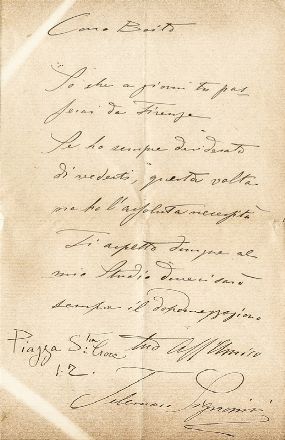 Caro Boito
So che a giorni tu pas-
serai da Firenze
Se ho sempre desiderato
di vederti, questa volta
ne ho l'assoluta necessità
Ti aspetto dunque al
mio Studio dove ci sarò
sempre il dopomezzogiorno
Tuo Aff Amico
Telemaco Signorini
Piazza Sta Croce
12.